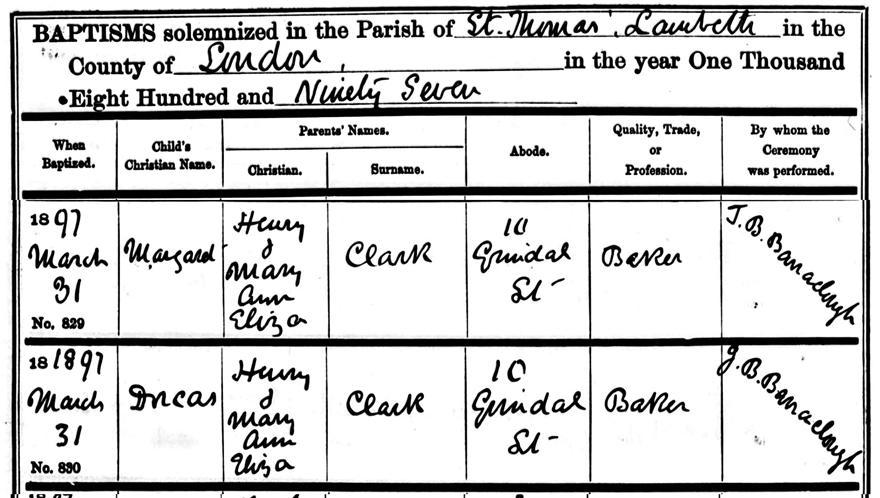 BAPTISMS solemnized in the Parish of St. Thomas', Lambeth in the
County of London, in the year One Thousand
Eight Hundred and Ninety Seven
When Baptized.
Child's Christian Name.
Parents' Names.
Christian.
Surname.
Abode.
Quality, Trade, or Profession.
By whom the Ceremony was performed.
1897 March 31
No. 829
Margaret
Henry & Mary Ann Eliza
Clark
10 Grindal St
Baker
J. B. Barraclough
18 1897 March 31
No. 830
Dorcas
Henry & Mary Ann Eliza
Clark
10 Grindal St
Baker
J. B. Barraclough